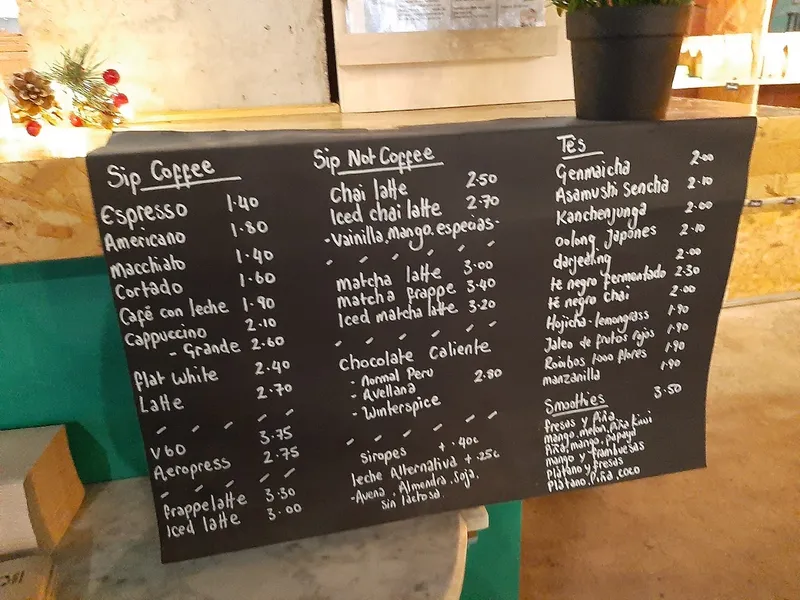 Sip Coffee
Espresso 1.40
Americano 1.80
Macchiato 1.40
Cortado 1.60
Café con leche 1.90
Cappuccino 2.10
- Grande 2.60
Flat White 2.40
Latte 2.70
V60 3.75
Aeropress 2.75
Frappelatte 3.30
Iced latte 3.00
Sip Not Coffee
Chai latte 2.50
Iced chai latte 2.70
-Vainilla, Mango, especias-
matcha latte 3.00
matcha frappe 3.40
Iced matcha latte 3.20
Chocolate Caliente
- Normal Peru 2.80
- Avellana
- Winterspice
Siropes + .40c
leche Alternativa + .25c
-Avena, Almendra, Soja,
sin lactosa.
Té's
Genmaicha 2.00
Asamushi Sencha 2.10
Kanchenjunga 2.00
Oolong Japones 2.10
darjeeling 2.00
te negro fermentado 2.30
té negro chai 2.00
Hojicha-lemongrass 1.90
Jaleo de frutos rojos 1.90
Rooibos 1000 flores 1.90
manzanilla 1.90
Smoothies 3.50
Fresas y Piña
mango, melon, Piña, Kiwi
Piña, mango, papaya
mango y frambuesas
Platano y fresas
Platano, Piña, coco